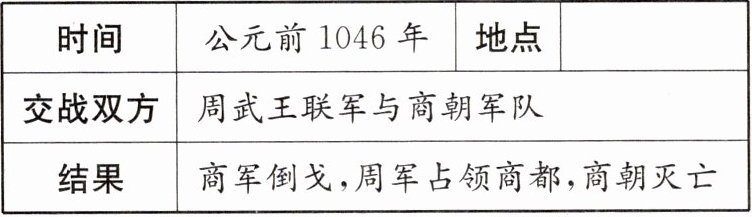 时间 公元前 1046 年 地点
交战双方 周武王联军与商朝军队
结果 商军倒戈,周军占领商都,商朝灭亡